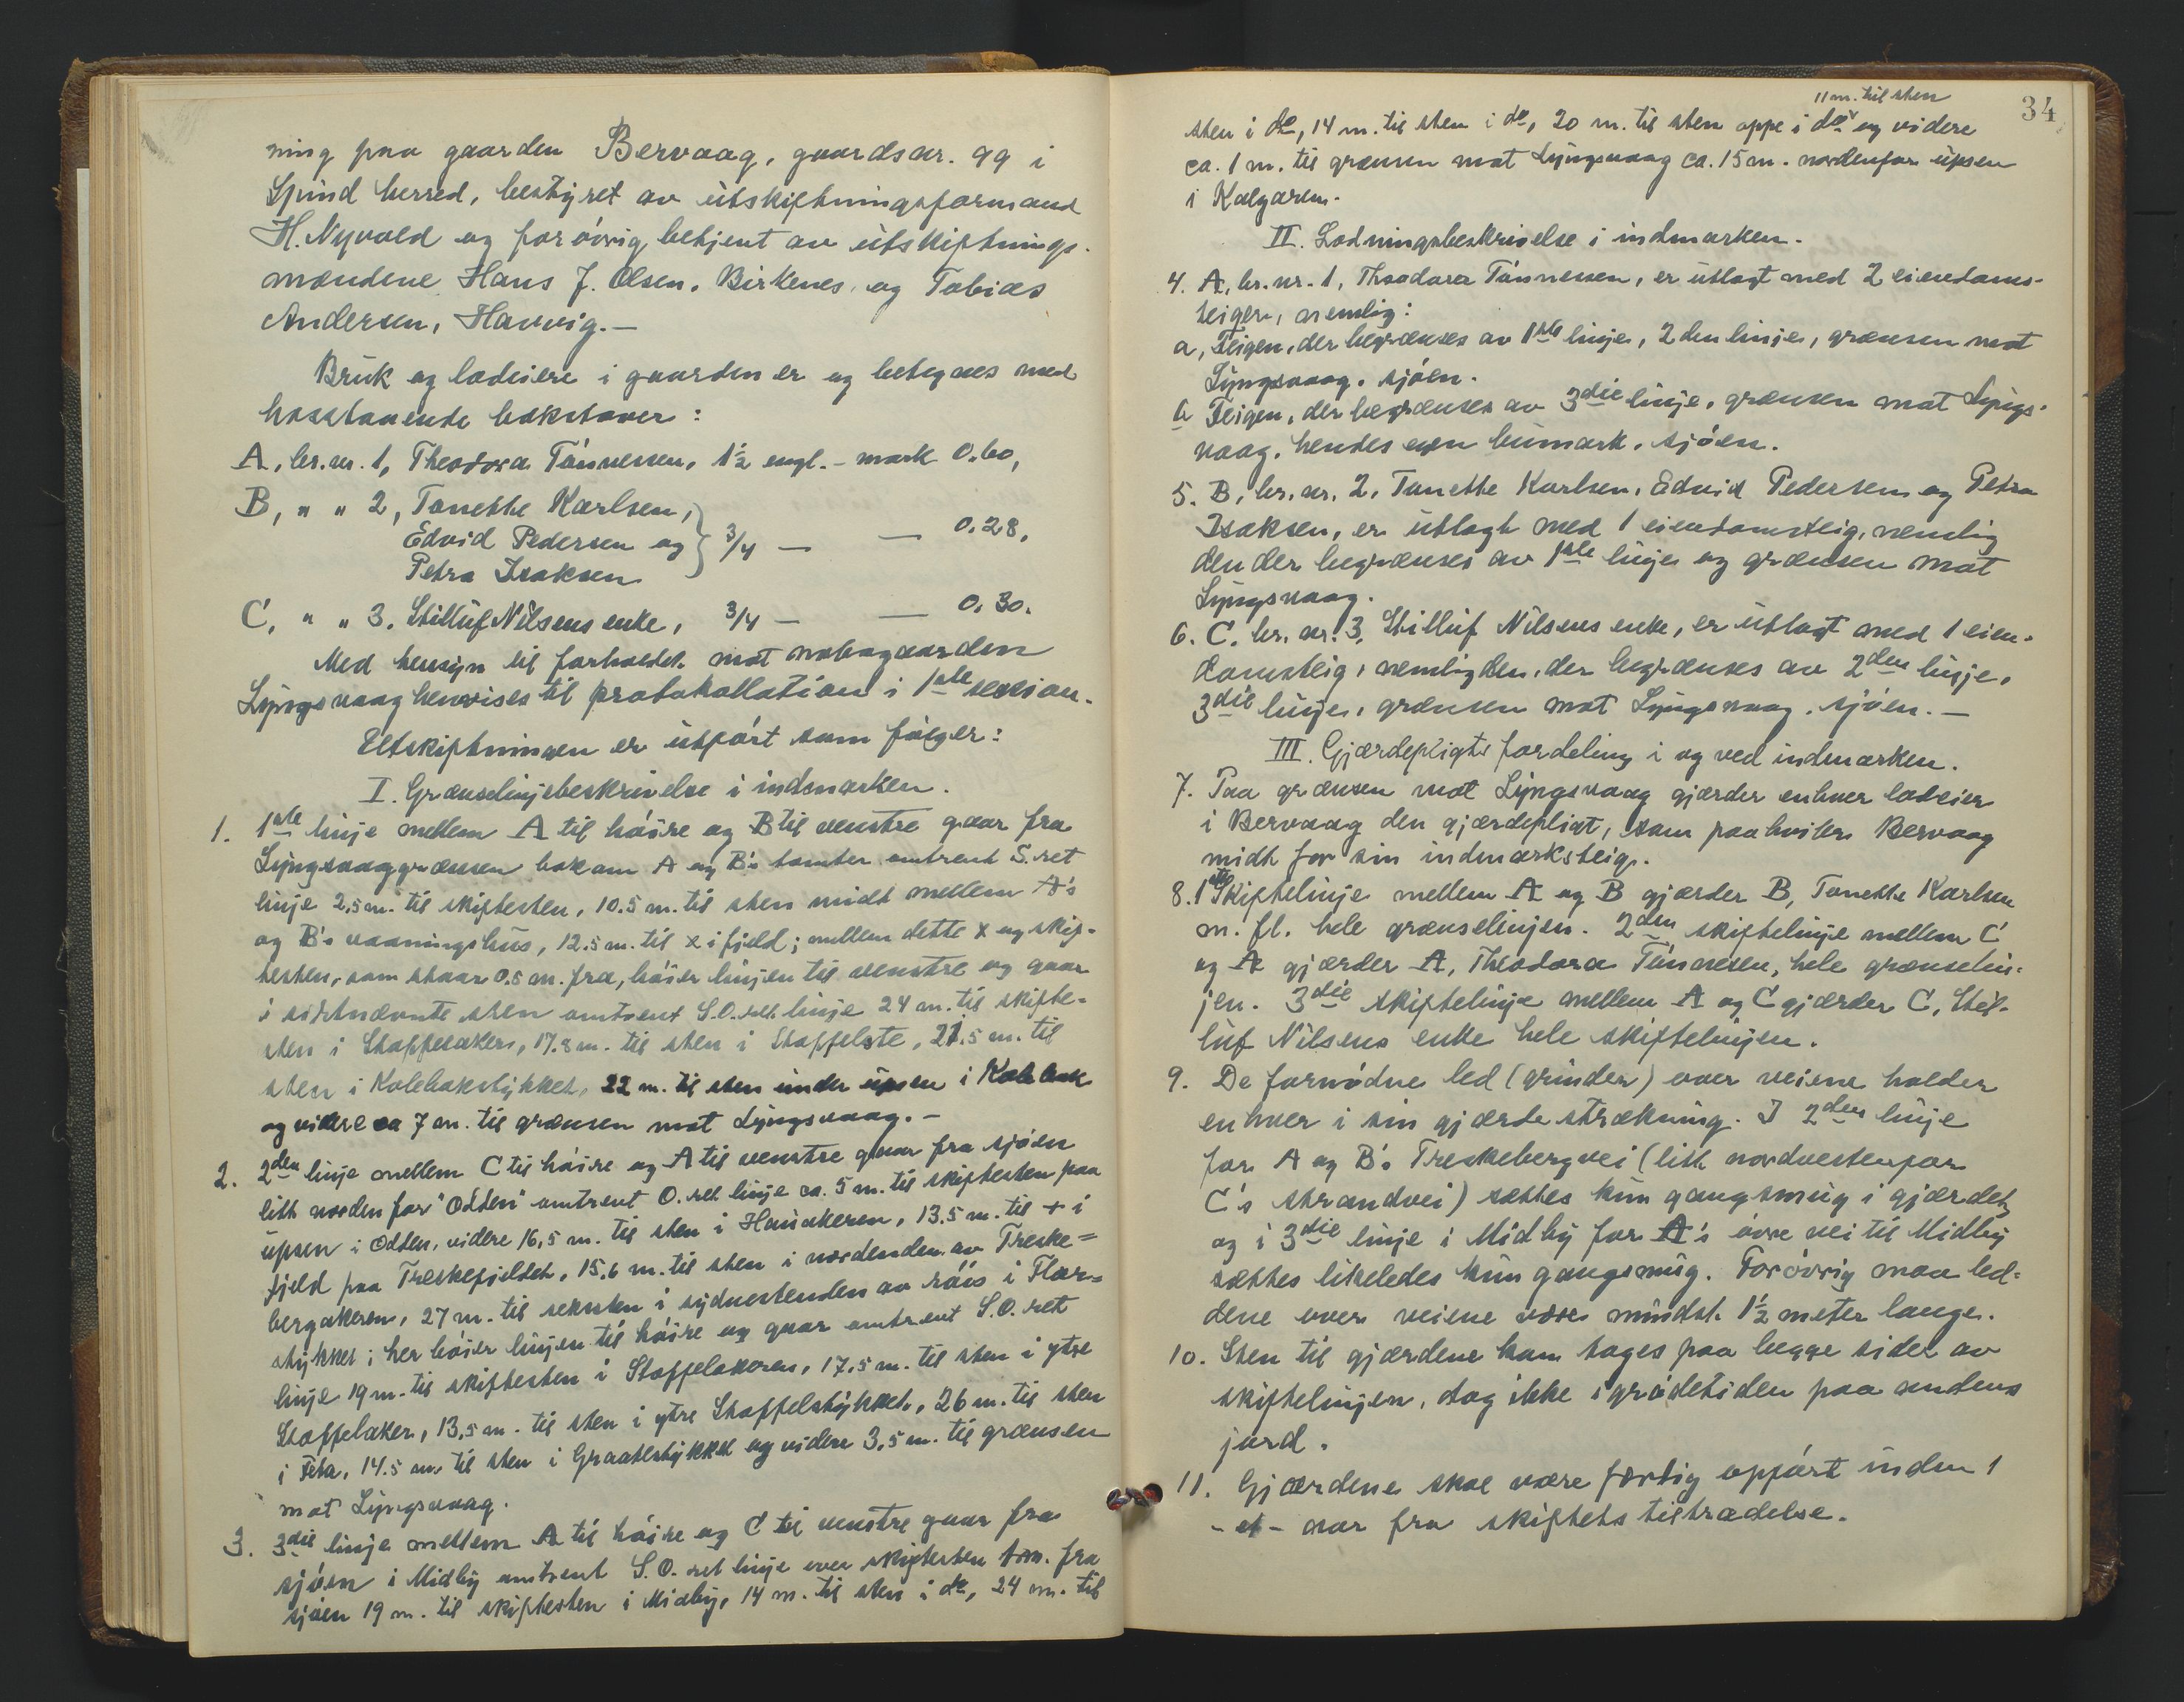 ning paa gaarden Bervaag, gaardsnr. 99 i
Spind herred, bestyret av utskiftningsformand
H. Nyvold og forøvrig betjent av utskiftnings-
mændene Hans J. Olsen, Birkenes og Tobias
Andersen, Havvig.—
Bruk og lodeiere i gaarden er og betegnes med
hosstaaende bokstaver:
A, br.nr. 1, Theodora Tønnessen, 1½ engl. - mark 0.60,
B, " " 2, Tonette Karlsen,
Edvid Pedersen og } 3/4 — — 0.28,
Petra Isaksen
C, " " 3. Stilluf Nilsens enke, 3/4 — — 0.30.
Med hensyn til forholdet mot nabogaarden
Lyngsvaag henvises til protokollation i 1ste session.
Utskiftningen er utført som følger:
I. Grænselinjebeskrivelse i indmarken.
1. 1ste linje mellem A til høire og B til venstre gaar fra
Lyngsvaaggrænsen bakom A og B's tomter omtrent S. ret
linje 2,5 m. til skiftesten, 10.5 m. til sten midt mellem A's
og B's vaaningshus, 12.5 m. til x i fjeld; mellem dette x og skif-
testen, som staar 0.5 m. fra, bøier linjen til venstre og gaar
i sidstnævnte sten omtrent S.O. ret linje 24 m. til skifte-
sten i Stoffelaker, 17.8 m. til sten i Stoffelste, 21.5 m. til
sten i Kolebakstykket, 22 m. til sten under upsen i Kolebak
og videre ca 7 m. til grænsen mot Lyngsvaag.—
2. 2den linje mellem C til høire og A til venstre gaar fra sjøen
litt norden for "Odden" omtrent O. ret linje ca. 5 m. til skiftesten paa
upsen i Odden, videre 16,5 m. til sten i Hauakeren, 13.5 m. til + i
fjeld paa Treskefjeldet, 15.6 m. til sten i nordenden av Treske=
bergakeren, 27 m. til sekssten i sydvestenden av røis i Flær=
stykket; her bøier linjen til høire og gaar omtrent S.O. ret
linje 19 m. til skiftesten i Stoffelakeren, 17,5 m. til sten i ytre
Stoffelaker, 13,5 m. til sten i ytre Stoffelstykket, 26 m. til sten
i Feta, 14.5 m. til sten i Graatlestykket og videre 3,5 m. til grænsen
mot Lyngsvaag.
3. 3die linje mellem A til høire og C til venstre gaar fra
sjøen i Midby omtrent S.O. ret linje over skiftesten 1 m. fra
sjøen 19 m. til skiftesten i Midby, 14 m. til sten i do, 24 m. til
34
11 m. til sten
sten i do, 14 m. til sten i do, 20 m. til sten oppe i do ᵛ og videre
ca. 1 m. til grænsen mot Lyngsvaag ca. 15 m. nordenfor upsen
i Kalgaren.
II. Lodningsbeskrivelse i indmarken.
4. A, br.nr. 1, Theodora Tønnessen, er utlagt med 2 eiendoms-
teiger, nemlig:
a, Teigen, der begrænses av 1ste linje, 2den linje, grænsen mot
Lyngsvaag, sjøen.
b Teigen, der begrænses av 3die linje, grænsen mot Lyngs-
vaag, hendes egen bumark, sjøen.
5. B, br. nr. 2, Tonette Karlsen, Edvid Pedersen og Petra
Isaksen, er utlagt med 1 eiendomsteig, nemlig
den der begrænses av 1ste linje og grænsen mot
Lyngsvaag.
6. C. br. nr. 3, Stilluf Nilsens enke, er utlagt med 1 eien-
domsteig, nemlig den, der begrænses av 2den linje,
3die linje, grænsen mot Lyngsvaag, sjøen.—
III. Gjærdepligts fordeling i og ved indmarken.
7. Paa grænsen mot Lyngsvaag gjærder enhver lodeier
i Bervaag den gjærdepligt, som paahviler Bervaag
midt for sin indmarksteig.
8. 1ste Skiftelinje mellem A og B gjærder B, Tonette Karlsen
m. fl. hele grænselinjen. 2den skiftelinje mellem C
og A gjærder A, Theodora Tønnesen, hele grænselin-
jen. 3die skiftelinje mellem A og C gjærder C, Stil-
luf Nilsens enke hele skiftelinjen.
9. De fornødne led (grinder) over veiene holder
enhver i sin gjærdestrækning. I 2den linje
for A og B's Treskebergvei (litt nordvestenfor
C's strandvei) sættes kun gangsmug i gjærdet,
og i 3die linje i Midby for A's øvre vei til Midby
sættes likeledes kun gangsmug. Forøvrig maa led-
dene over veiene være mindst 1½ meter lange.
10. Sten til gjærdene kan tages paa begge sider av
skiftelinjen, dog ikke i grødetiden paa andens
jord.
11. Gjærdene skal være færdig opført inden 1
- et - aar fra skiftets tiltrædelse.